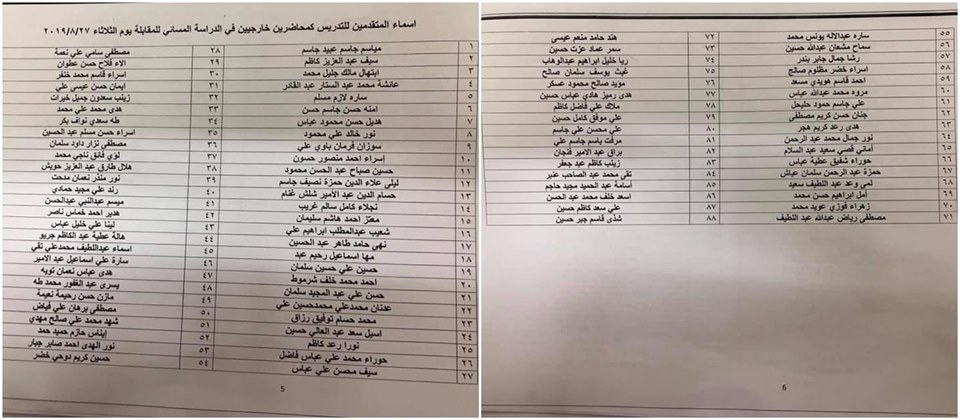 اسماء المتقدمين للتدريس كمحاضرين خارجيين في الدراسة المسائي للمقابلة يوم الثلاثاء ٢٠١٩/٨/٢٧
١ مياسم جاسم عبيد جاسم ٢٨ مصطفى سامي علي نعمة
٢ سيف عبد العزيز كاظم ٢٩ الاء فلاح حسن عطوان
٣ ابتهال مالك جليل محمد ٣٠ اسراء قاسم محمد خنفر
٤ عائشة محمد عبد الستار عبد القادر ٣١ ايمان حسن عيسى علي
٥ ساره لازم مسلم ٣٢ زينب سعدون جميل خيرات
٦ امنه حسن جاسم حسن ٣٣ هدى محمد علي محمد
٧ هديل حسن محمود عباس ٣٤ طه سعدي نواف بكر
٨ نور خالد علي محمود ٣٥ اسراء حسن مسلم عبد الحسين
٩ سوزان فرمان باوي علي ٣٦ مصطفى نزار داود سلمان
١٠ إسراء احمد منصور حسون ٣٧ لؤي فائق ناجي محمد
١١ حسين صباح عبد الحسن محمود ٣٨ هلال طارق عبد العزيز حويش
١٢ ليلى علاء الدين حمزة نصيف جاسم ٣٩ نور منذر نعمان مدحت
١٣ حسام الدين عبد الامير شلش غنام ٤٠ رند علي مجيد حمادي
١٤ نجلاء كامل سالم غريب ٤١ ميسم عبدالنبي عبدالحسن
١٥ معتز احمد هاشم سليمان ٤٢ هدير احمد خماس ناصر
١٦ شعيب عبدالمطلب ابراهيم علي ٤٣ لينا علي خليل عباس
١٧ نهى حامد طاهر عبد الحسين ٤٤ هالة عطية عبد الكاظم جريو
١٨ مها اسماعيل رحيم عبد ٤٥ اسماء عبداللطيف محمدعلي تقي
١٩ حسين علي حسين سلمان ٤٦ سارة علي اسماعيل عبد الامير
٢٠ احمد محمد خلف شرموط ٤٧ هدى عباس نعمان تويه
٢١ حسن علي عبد المجيد سلمان ٤٨ يسرى عبد الغفور محمد طه
٢٢ عدنان محمدعلي محمدحسين علي ٤٩ مازن حسن رحيمة نعيمة
٢٣ محمد حسام توفيق رزاق ٥٠ مصطفى برهان علي فياض
٢٤ اسيل سعد عبد العالي حسين ٥١ شهد محمد علي صالح مهدي
٢٥ نورا رعد كاظم ٥٢ إيناس حازم حميد حمد
٢٦ حوراء محمد علي عباس فاضل ٥٣ نور الهدى احمد صابر جبار
٢٧ سيف محسن علي عباس ٥٤ حسين كريم دوحي خضر
5
٥٥ ساره عبدالاله يونس محمد ٧٢ هند حامد منعم عيسى
٥٦ سماح مشعان عبدالله حسين ٧٣ سمر عماد عزت حسين
٥٧ رشا جمال جابر بندر ٧٤ ربا خليل ابراهيم
٥٨ اسراء خضر مظلوم صالح ٧٥ غيث يوسف سلمان صالح
٥٩ احمد قاسم هويدي مسعد ٧٦ مؤيد صالح محمود عسكر
٦٠ مروه محمد عبدالله عباس ٧٧ هدى رميز هادي عباس حسين
٦١ علي جاسم حمود حليحل ٧٨ ملاك علي فاضل كاظم
٦٢ جنان حسن كريم مصطفى ٧٩ علي موفق كامل حسين
٦٣ هدى رعد كريم هجر ٨٠ علي محسن علي جاسم
٦٤ نور جمال محمد عبد الرحمن ٨١ مرفت باسم جاسم علي
٦٥ أماني قصي سعيد عبد السلام ٨٢ براق عبد الامير فنجان
٦٦ حوراء شفيق عطية عباس ٨٣ زينب كاظم عبد جعفر
٦٧ حمزة عبد الرحمن سلمان ٨٤ تقى محمد عبد الصاحب عنبر
٦٨ لمى وعد عبد اللطيف سعيد ٨٥ أسامة عبد الحميد مجيد حاجم
٦٩ أمل ابراهيم حسن محمد ٨٦ اسعد خلف محمد عبد الحسن
٧٠ زهراء فوزي عويد محمد ٨٧ علي سعد كاظم حسين
٧١ مصطفى رياض عبدالله عبد اللطيف ٨٨ شذى قاسم جبر حسين
6